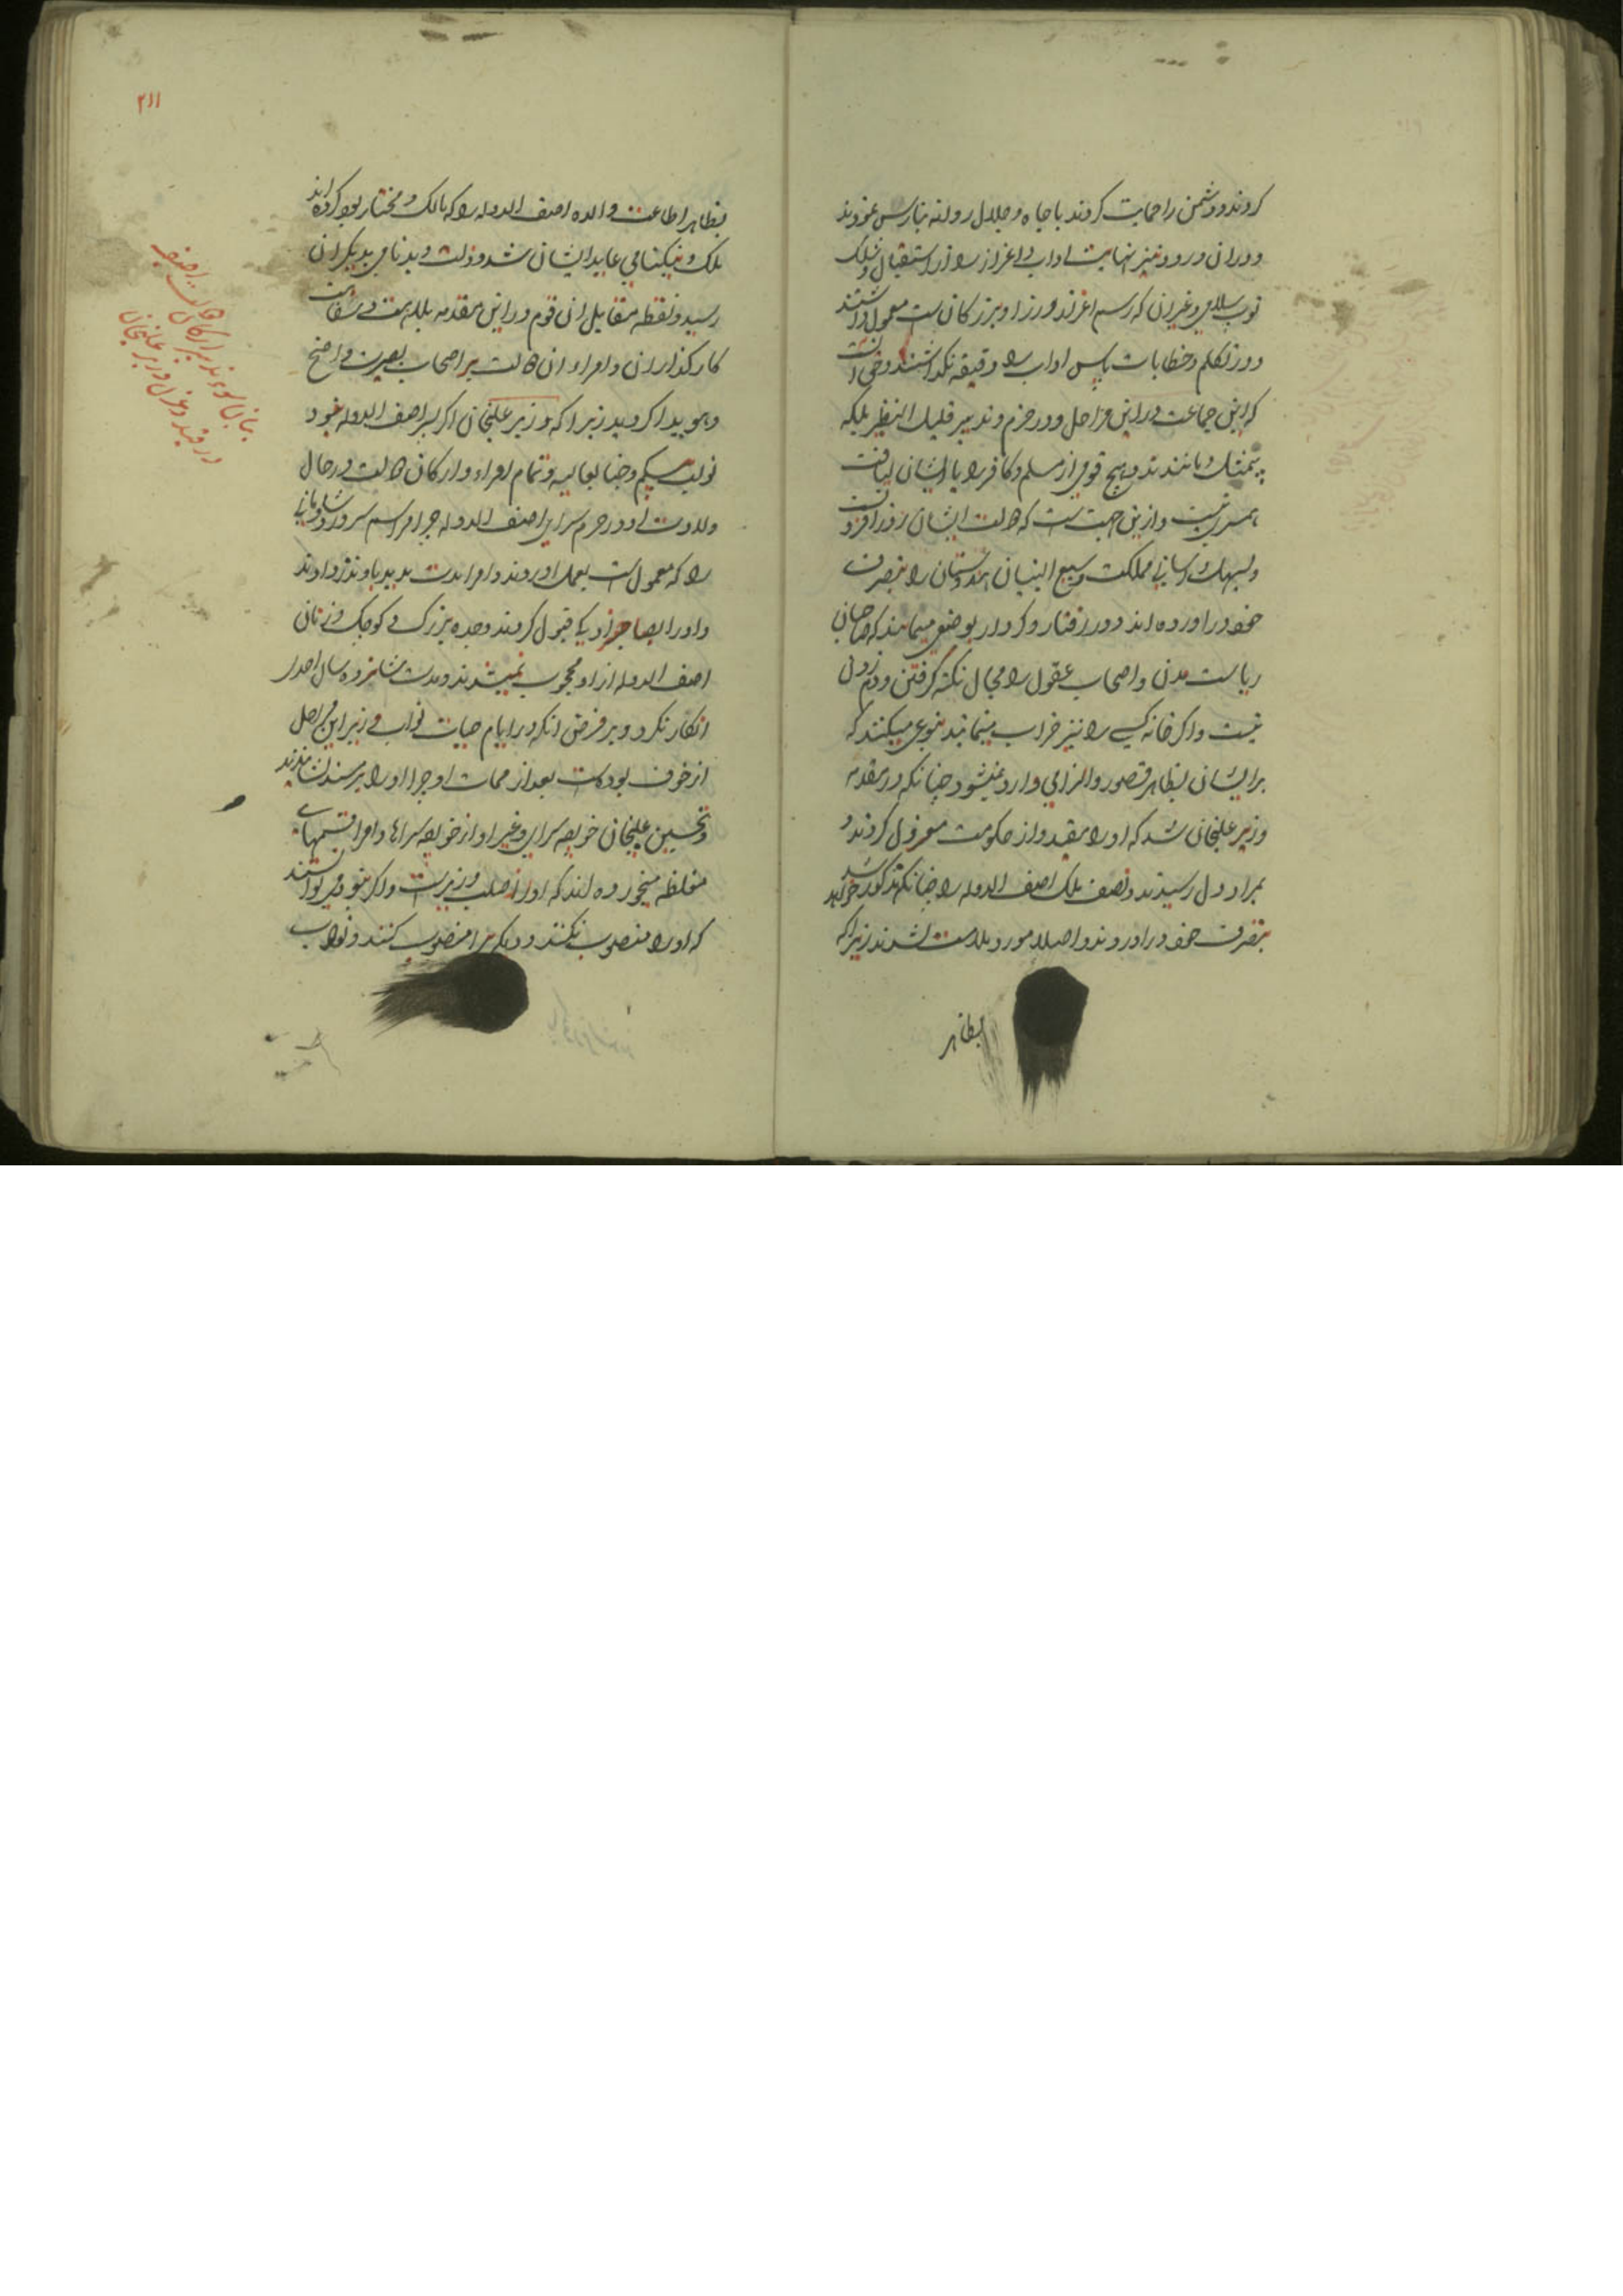 کردند و دشمن را حمایت کردند با جاه و جلال روانه بنارس نمودند
و دران ورود نیز نهایت اداب و اعزاز را از استقبال و شلک
توپ سلامی و غیران که رسم اعزه و وزرا و بزرکان ست معمول داشتند
و در تکلم و خطابات پاس اداب را دقیقه نکذاشتند و حق انست
که این جماعت در این مراحل و در حزم و تدبیر قلیل النظیر بلکه
بیمثل و مانندند و هیچ قومی از مسلم و کافر را با ایشان لیاقت
همسری نیست و ازین جهت ست که دولت ایشان روز افزون
و بسهل و اسانی مملکت وسیع البنیان هندوستان را بتصرف
خود در اورده اند و در رفتار و کردار بوضعی مینمایند که صاحبان
ریاست مدن و اصحاب عقول را مجال نکته کرفتن و دم زدن
نیست و اکر خانه کسی را نیز خراب مینمایند بنوعی میکنند که
بر ایشان بظاهر قصور و الزامی وارد نمیشود چنانکه در مقدمه
وزیر علیخان شد که او را مقید و از حکومت معزول کردند و
بمراد دل رسیدند و نصف ملک اصف الدوله را چنانکه مذکور خواهد شد
بتصرف خود در اوردند و اصلا مورد ملامت نشدند زیرا که
بظاهر
۲۱۱
بظاهر اطاعت والده اصف الدوله را که مالک و مختار بود کرده اند
ملک و نیکنامی عاید ایشان شد و ذلت و بدنامی بدیکران
رسید و نقطه مقابل ان قوم در این مقدمه بلاهت و سفاهت
کارکذاران و امراء ان دولت بر اصحاب بصیرت واضح
و هویدا کردید زیرا که وزیر علیخان اکر پسر اصف الدوله نبود
نواب بیکم و جناب عالیه و تمام امراء و ارکان دولت در حال
ولادت او در حرم سرای اصف الدوله چرا مراسم سرور و شادمانی
را که معمول ست بعمل اوردند و امرا بدست هدیه باو نذر دادند
و او را بصاحبزادکی قبول کردند و جده بزرک و کوچک و زنان
اصف الدوله از او محجوب نمیشدند و مدت شانزده سال احدی
انکار نکرد و بر فرض انکه در ایام حیات نواب وزیر این مراحل
از خوف بوده ست بعد از ممات او چرا او را بر مسند نشاندند
و تحسین علیخان خواجه سرا و غیر او از خواجه سراها و امرا قسمهای
مغلظه میخورده اند که او از صلب وزیر ست و اکر نبود میتوانستند
که او را منصوب نکنند و دیکری را منصوب کنند و نواب
در قید و عزل وزیر علیخان